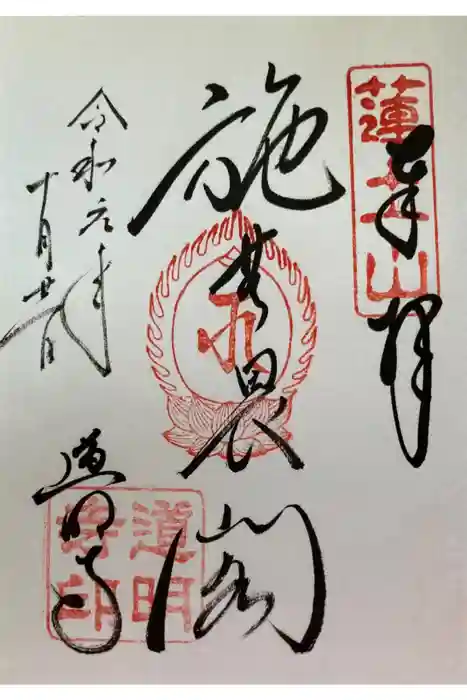 奉拝
蓮土山
施無畏閣
令和元年
十月
道明寺
道明
寺印